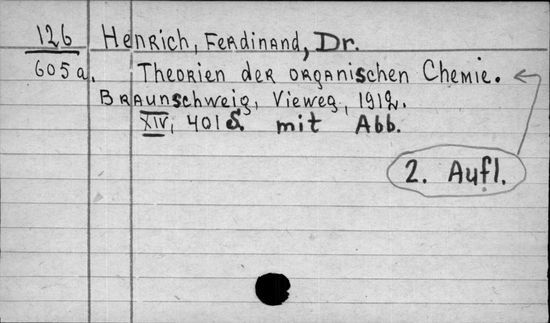 126 Henrich, Ferdinand, Dr.
605a. Theorien der organischen Chemie.
Braunschweig, Vieweg, 1912.
XIV, 401 S. mit Abb.
2. Aufl.